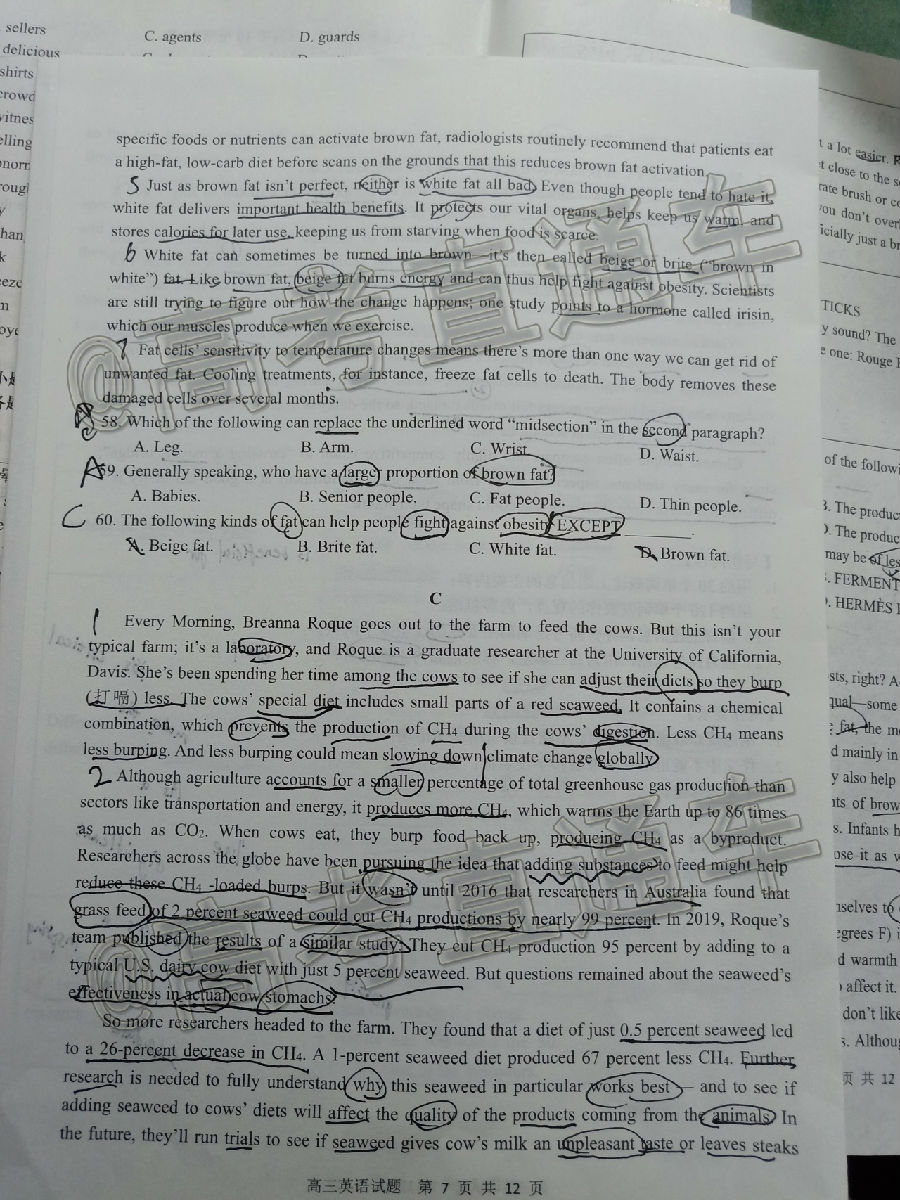 sellers
delicious
shirts
C. agents
D. guards
specific foods or nutrients can activate brown fat, radiologists routinely recommend that patients eat
a high-fat, low-carb diet before scans on the grounds that this reduces brown fat activation.
5 Just as brown fat isn't perfect, neither is white fat all bad. Even though people tend to hate it,
white fat delivers important health benefits. It protects our vital organs, helps keep us warm, and
stores calories for later use, keeping us from starving when food is scarce.
6 White fat can sometimes be turned into brown—it's then called beige or brite ("brown in
white") fat. Like brown fat, beige fat burns energy and can thus help fight against obesity. Scientists
are still trying to figure out how the change happens; one study points to a hormone called irisin,
which our muscles produce when we exercise.
7 Fat cells' sensitivity to temperature changes means there's more than one way we can get rid of
unwanted fat. Cooling treatments, for instance, freeze fat cells to death. The body removes these
damaged cells over several months.
58. Which of the following can replace the underlined word "midsection" in the second paragraph?
A. Leg. B. Arm. C. Wrist. D. Waist.
A 59. Generally speaking, who have a larger proportion of brown fat?
A. Babies. B. Senior people. C. Fat people. D. Thin people.
C 60. The following kinds of fat can help people fight against obesity EXCEPT
A. Beige fat. B. Brite fat. C. White fat. D. Brown fat.
C
1 Every Morning, Breanna Roque goes out to the farm to feed the cows. But this isn't your
typical farm; it's a laboratory, and Roque is a graduate researcher at the University of California,
Davis. She's been spending her time among the cows to see if she can adjust their diets so they burp
(打嗝) less. The cows' special diet includes small parts of a red seaweed. It contains a chemical
combination, which prevents the production of CH₄ during the cows' digestion. Less CH₄ means
less burping. And less burping could mean slowing down climate change globally.
2 Although agriculture accounts for a smaller percentage of total greenhouse gas production than
sectors like transportation and energy, it produces more CH₄, which warms the Earth up to 86 times
as much as CO₂. When cows eat, they burp food back up, producing CH₄ as a byproduct.
Researchers across the globe have been pursuing the idea that adding substances to feed might help
reduce these CH₄ -loaded burps. But it wasn't until 2016 that researchers in Australia found that
grass feed of 2 percent seaweed could cut CH₄ productions by nearly 99 percent. In 2019, Roque's
team published the results of a similar study. They cut CH₄ production 95 percent by adding to a
typical U.S. dairy cow diet with just 5 percent seaweed. But questions remained about the seaweed's
effectiveness in actual cow stomachs.
So more researchers headed to the farm. They found that a diet of just 0.5 percent seaweed led
to a 26-percent decrease in CH₄. A 1-percent seaweed diet produced 67 percent less CH₄. Further
research is needed to fully understand why this seaweed in particular works best — and to see if
adding seaweed to cows' diets will affect the quality of the products coming from the animals. In
the future, they'll run trials to see if seaweed gives cow's milk an unpleasant taste or leaves steaks
高三英语试题 第 7 页 共 12 页
@高考直通车
@高考直通车
a lot easier.
TICKS
y sound? The
e one: Rouge
of the followi
may be of les
FERMENT
HERMÈS
sts, right?
qual—some
fat, the m
d mainly in
y also help
nts of brow
s. Infants h
ose it as
nselves to
egrees F) i
d warmth
affect it.
don't like
s. Althou
页 共 12